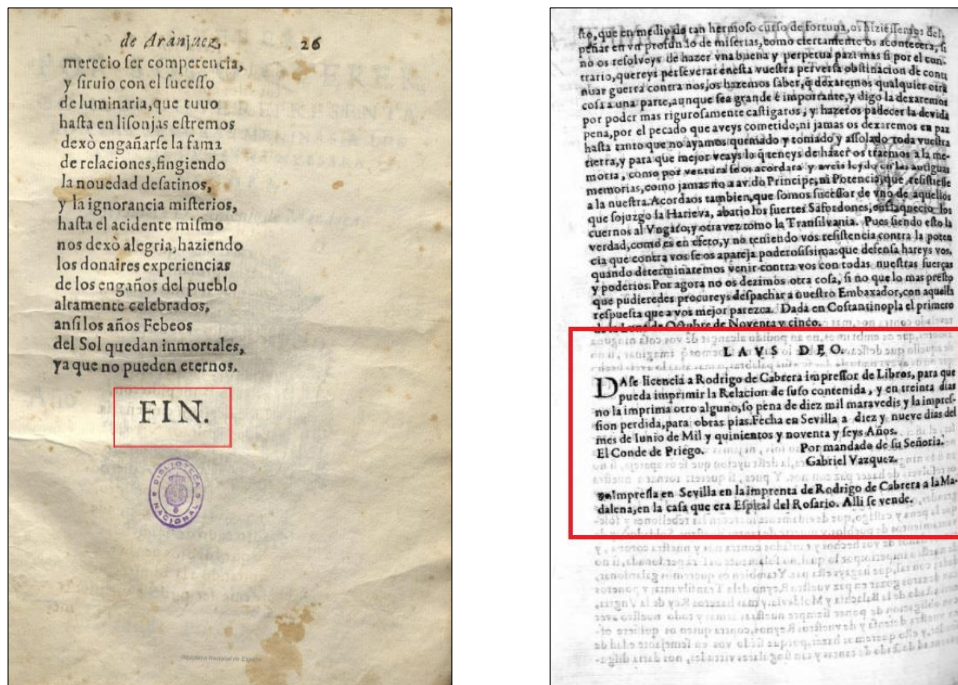 de Arànjuez, 26
merecio ser competencia,
y siruio con el sucesso
de luminaria, que tuuo
hasta en lisonjas estremos
dexò engañarse la fama
de relaciones, fingiendo
la nouedad desatinos,
y la ignorancia misterios,
hasta el acidente mismo
nos dexò alegria, haziendo
los donaires experiencias
de los engaños del pueblo
altamente celebrados,
ansi los años Febeos
del Sol quedan inmortales,
ya que no pueden eternos.
FIN.
BIBLIOTECA NACIONAL
Biblioteca Nacional de España
sto, que en medio de tan hermoso curso de fortuna, os hiziessemos des
peñar en vn profundo de miserias, como ciertamente os acontecera, si
no os resolveys de hazer vna buena y perpetua paz: mas si por el con
trario, quereys perseverar en esta vuestra perversa obstinacion de conti
nuar guerra contra nos, os hazemos saber, q̃ dexaremos qualquier otra
cosa a una parte, aunque sea grande è importante, y digo la dexaremos
por poder mas rigurosamente castigaros, y hazeros padecer la devida
pena, por el pecado que aveys cometido; ni jamas os dexaremos en paz
hasta tanto que no ayamos quemado y tomado y assolado toda vuestra
tierra, y para que mejor veays lo q̃ teneys de hazer os traemos a la me-
moria, como por ventura se os acordara y aveis leydo en las antiguas
memorias, como jamas no a avido Principe, ni Potencia, que resistiesse
a la nuestra. Acordaos tambien, que somos sucessor de vno de aquellos
que sojuzgo la Harieva, abatio los fuertes los
cuernos al Vngaro, y otra vez tomo la Transilvania. Pues siendo esto la
verdad, como es en efeto, y no teniendo vos resistencia contra la poten
cia que contra vos se os apareja poderosissima: que defensa hareys vos,
quando determinaremos venir contra vos con todas nuestras fuerças
y poderios. Por agora no os dezimos otra cosa, si no que lo mas presto
que pudieredes procureys despachar a nuestro Embaxador, con aquella
respuesta que a vos mejor parezca. Dada en Costantinopla el primero
de la Luna de Otubre de Noventa y cinco.
LAVS DEO.
DAse licencia a Rodrigo de Cabrera impressor de Libros, para que
pueda imprimir la Relacion de suso contenida, y en treinta dias
no la imprima otro alguno, so pena de diez mil maravedis y la impres-
sion perdida, para obras pias. Fecha en Sevilla a diez y nueve dias del
mes de Iunio de Mil y quinientos y noventa y seys Años.
El Conde de Priego. Por mandado de su Señoria.
Gabriel Vazquez.
Impressa en Sevilla en la imprenta de Rodrigo de Cabrera a la Ma-
dalena, en la casa que era Espital del Rosario. Alli se vende.